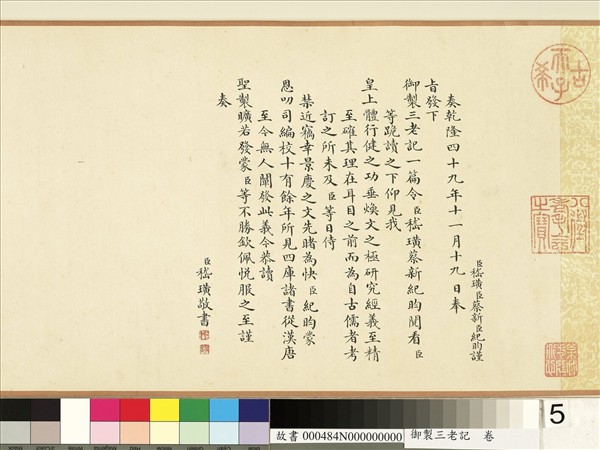 臣嵇璜臣蔡新臣紀昀謹
奏乾隆四十九年十一月十九日奉
旨發下
御製三老記一篇令臣嵇璜蔡新紀昀閱看臣
等跪讀之下仰見我
皇上體行健之功垂煥文之極研究經義至精
至確其理在耳目之前而為自古儒者考
訂之所未及臣等日侍
禁近竊幸景慶之文先睹為快臣紀昀蒙
恩叨司編校十有餘年所見四庫諸書從漢唐
至今無人闡發此義今恭讀
聖製曠若發蒙臣等不勝欽佩悅服之至謹
奏
臣嵇璜敬書
古希天子
八徵耄念之寶
5
故書 000484N000000000 御製三老記 卷